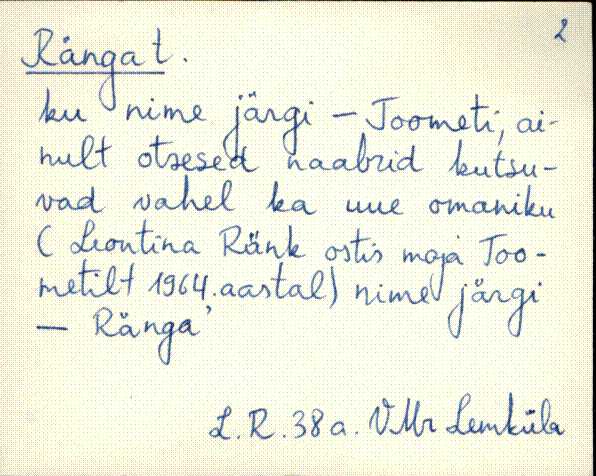 2
Ränga t.
ku nime järgi – Toometi, ai-
nult otsesed naabrid kutsu-
vad vahel ka uue omaniku
( Leontina Ränk ostis maja Too-
metilt 1964. aastal) nime järgi
– Ränga'
L. R. 38 a. VMr Lemküla